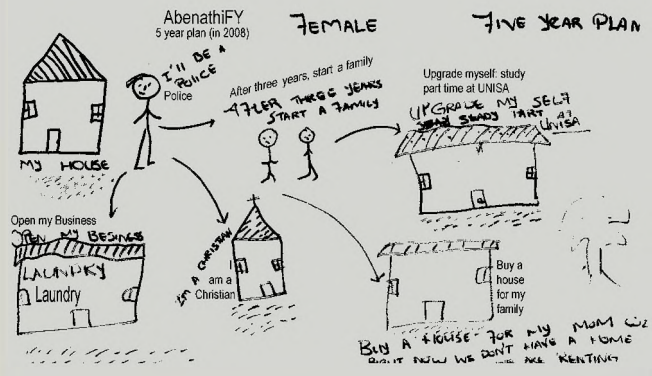 AbenathiFY
5 year plan (in 2008)
FEMALE
FIVE YEAR PLAN
I'll BE A
POLICE
Police
After three years, start a family
AFTER THREE YEARS
START A FAMILY
Upgrade myself: study
part time at UNISA
UPGRADE MY SELF
STEADY PART AT
UNISA
MY HOUSE
Open my Business
OPEN MY BESINESS
LAUNDRY
Laundry
I'M A CHRISTIAN
I
am a
Christian
Buy a
house
for my
family
BUY A HOUSE FOR MY MOM
RIGHT NOW WE DON'T HAVE A HOME
WE ARE RENTING